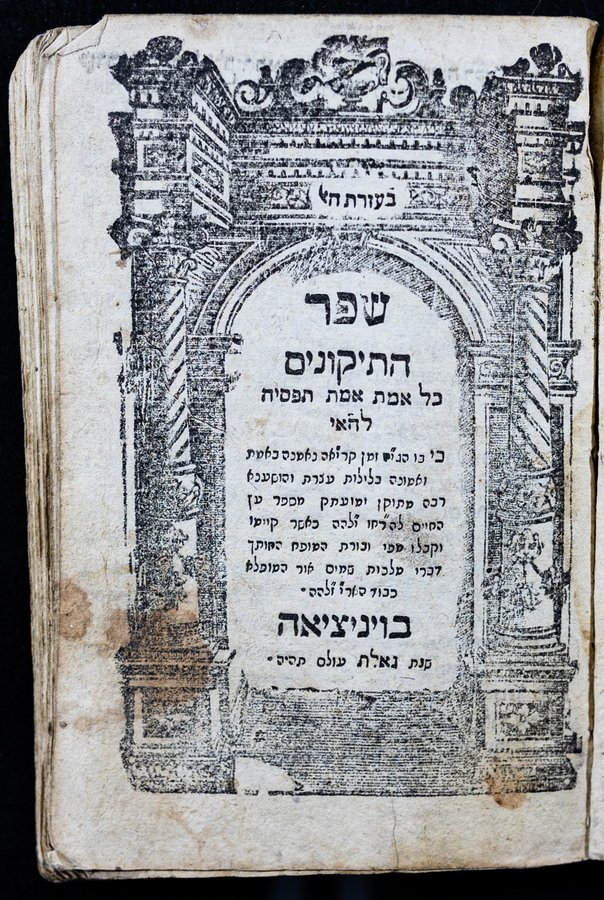 בעזרת האל
ספר
התיקונים
כל אמת אמת תפסיה
להאי
כי בו הגי״ם זמן קריאה נאמנה באמת
ואמונה בלילות עצרת והושענא
רבה מתוקן ימועתק מספר עץ
החיים להר״חו ז״להה כאשר קיימו
וקבלו מפי ובורת המופת החותך
דברי מלכות שמים אור המופלא
כבוד האר״י ז״להה
בויניציאה
שנת גאלת עולם תהיה